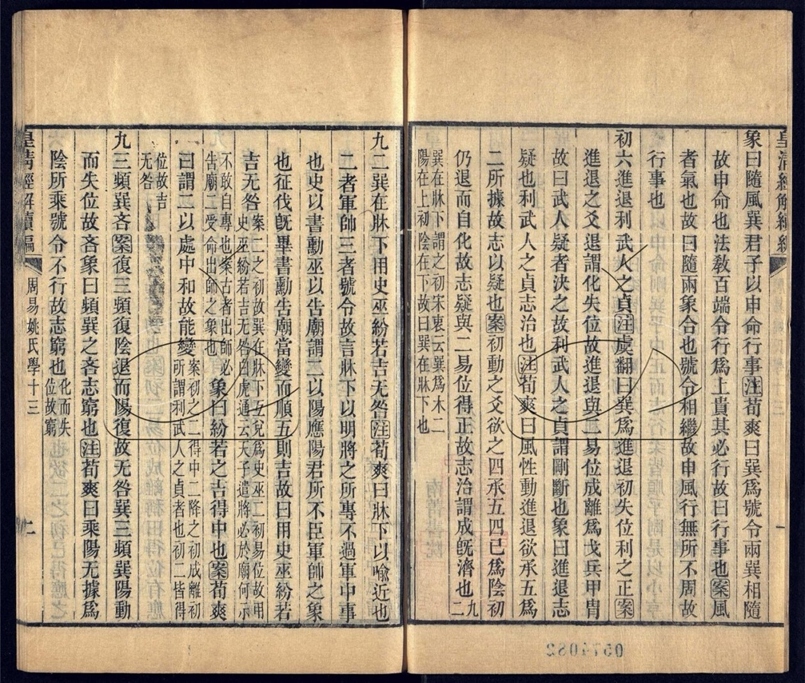 象曰隨風巽君子以申命行事注荀爽曰巽爲號令兩巽相隨
故申命也法敎百端令行爲上貴其必行故曰行事也案風
者氣也故曰隨兩象合也號令相繼故申風行無所不周故
行事也
初六進退利武人之貞注虞翻曰巽爲進退初失位利之正案
進退之爻退謂化失位故進退與二易位成離爲戈兵甲冑
故曰武人疑者決之故利武人之貞謂剛斷也象曰進退志
疑也利武人之貞志治也注荀爽曰風性動進退欲承五爲
二所據故志以疑也案初動之爻欲之四承五四已爲陰初
仍退而自化故志疑與二易位得正故志治謂成旣濟也九二
巽在牀下謂之初宋衷云巽爲木二
陽在上初陰在下故曰巽在牀下也
九二巽在牀下用史巫紛若吉无咎注荀爽曰牀下以喩近也
二者軍帥三者號令故言牀下以明將之所專不過軍中事
也史以書勳巫以告廟謂二以陽應陽君所不臣軍帥之象
也征伐旣畢書勳告廟當變而順五則吉故曰用史巫紛若
吉无咎案二之初故巽在牀下互兌爲史巫二初易位故用
史巫紛若吉无咎白虎通云天子遣將必於廟何示
不敢自專也案古者出師必
告廟二受命出師之象也象曰紛若之吉得中也案荀爽
曰謂二以處中和故能變案初之二得中二降之初成離初
所謂利武人之貞者也初二皆得
位故吉
无咎
九三頻巽吝案復三頻復陰退而陽復故无咎巽三頻巽陽動
而失位故吝象曰頻巽之吝志窮也注荀爽曰乘陽无據爲
陰所乘號令不行故志窮也化而失
位故窮
皇淸經解續編
周易姚氏學十三
二
皇淸經解續編
0574082